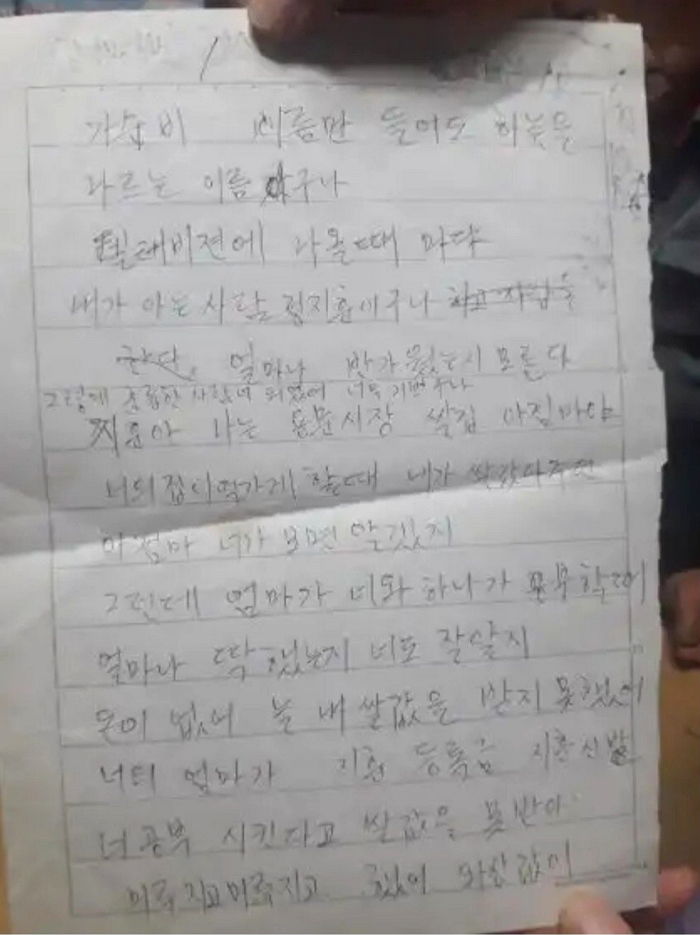 가수 비 이름만 들어도 하늘을
나르는 이름 이구나
텔래비젼에 나올때 마다
내가 아는 사람 정지훈이구나
얼마나 반가웠는지 모른다
그렇게 훌륭한 사람너 되였어 너무 기쁘구나
지훈아 나는 용문시장 쌀집 아줌마야
너의 집이 떡가게 할때 내가 쌀갖다주던
아점마 너가 보면 알겠지
그런데 엄마가 너와 하나가 공부학대
얼마나 딱했는지 너도 잘알지
돈이 없어 늘 내 쌀값을 받지 못했어
너의 엄마가 지훈 등록금 지훈신발
너공부 시킨다고 쌀값을 못받아
미루지고미루지고 했어